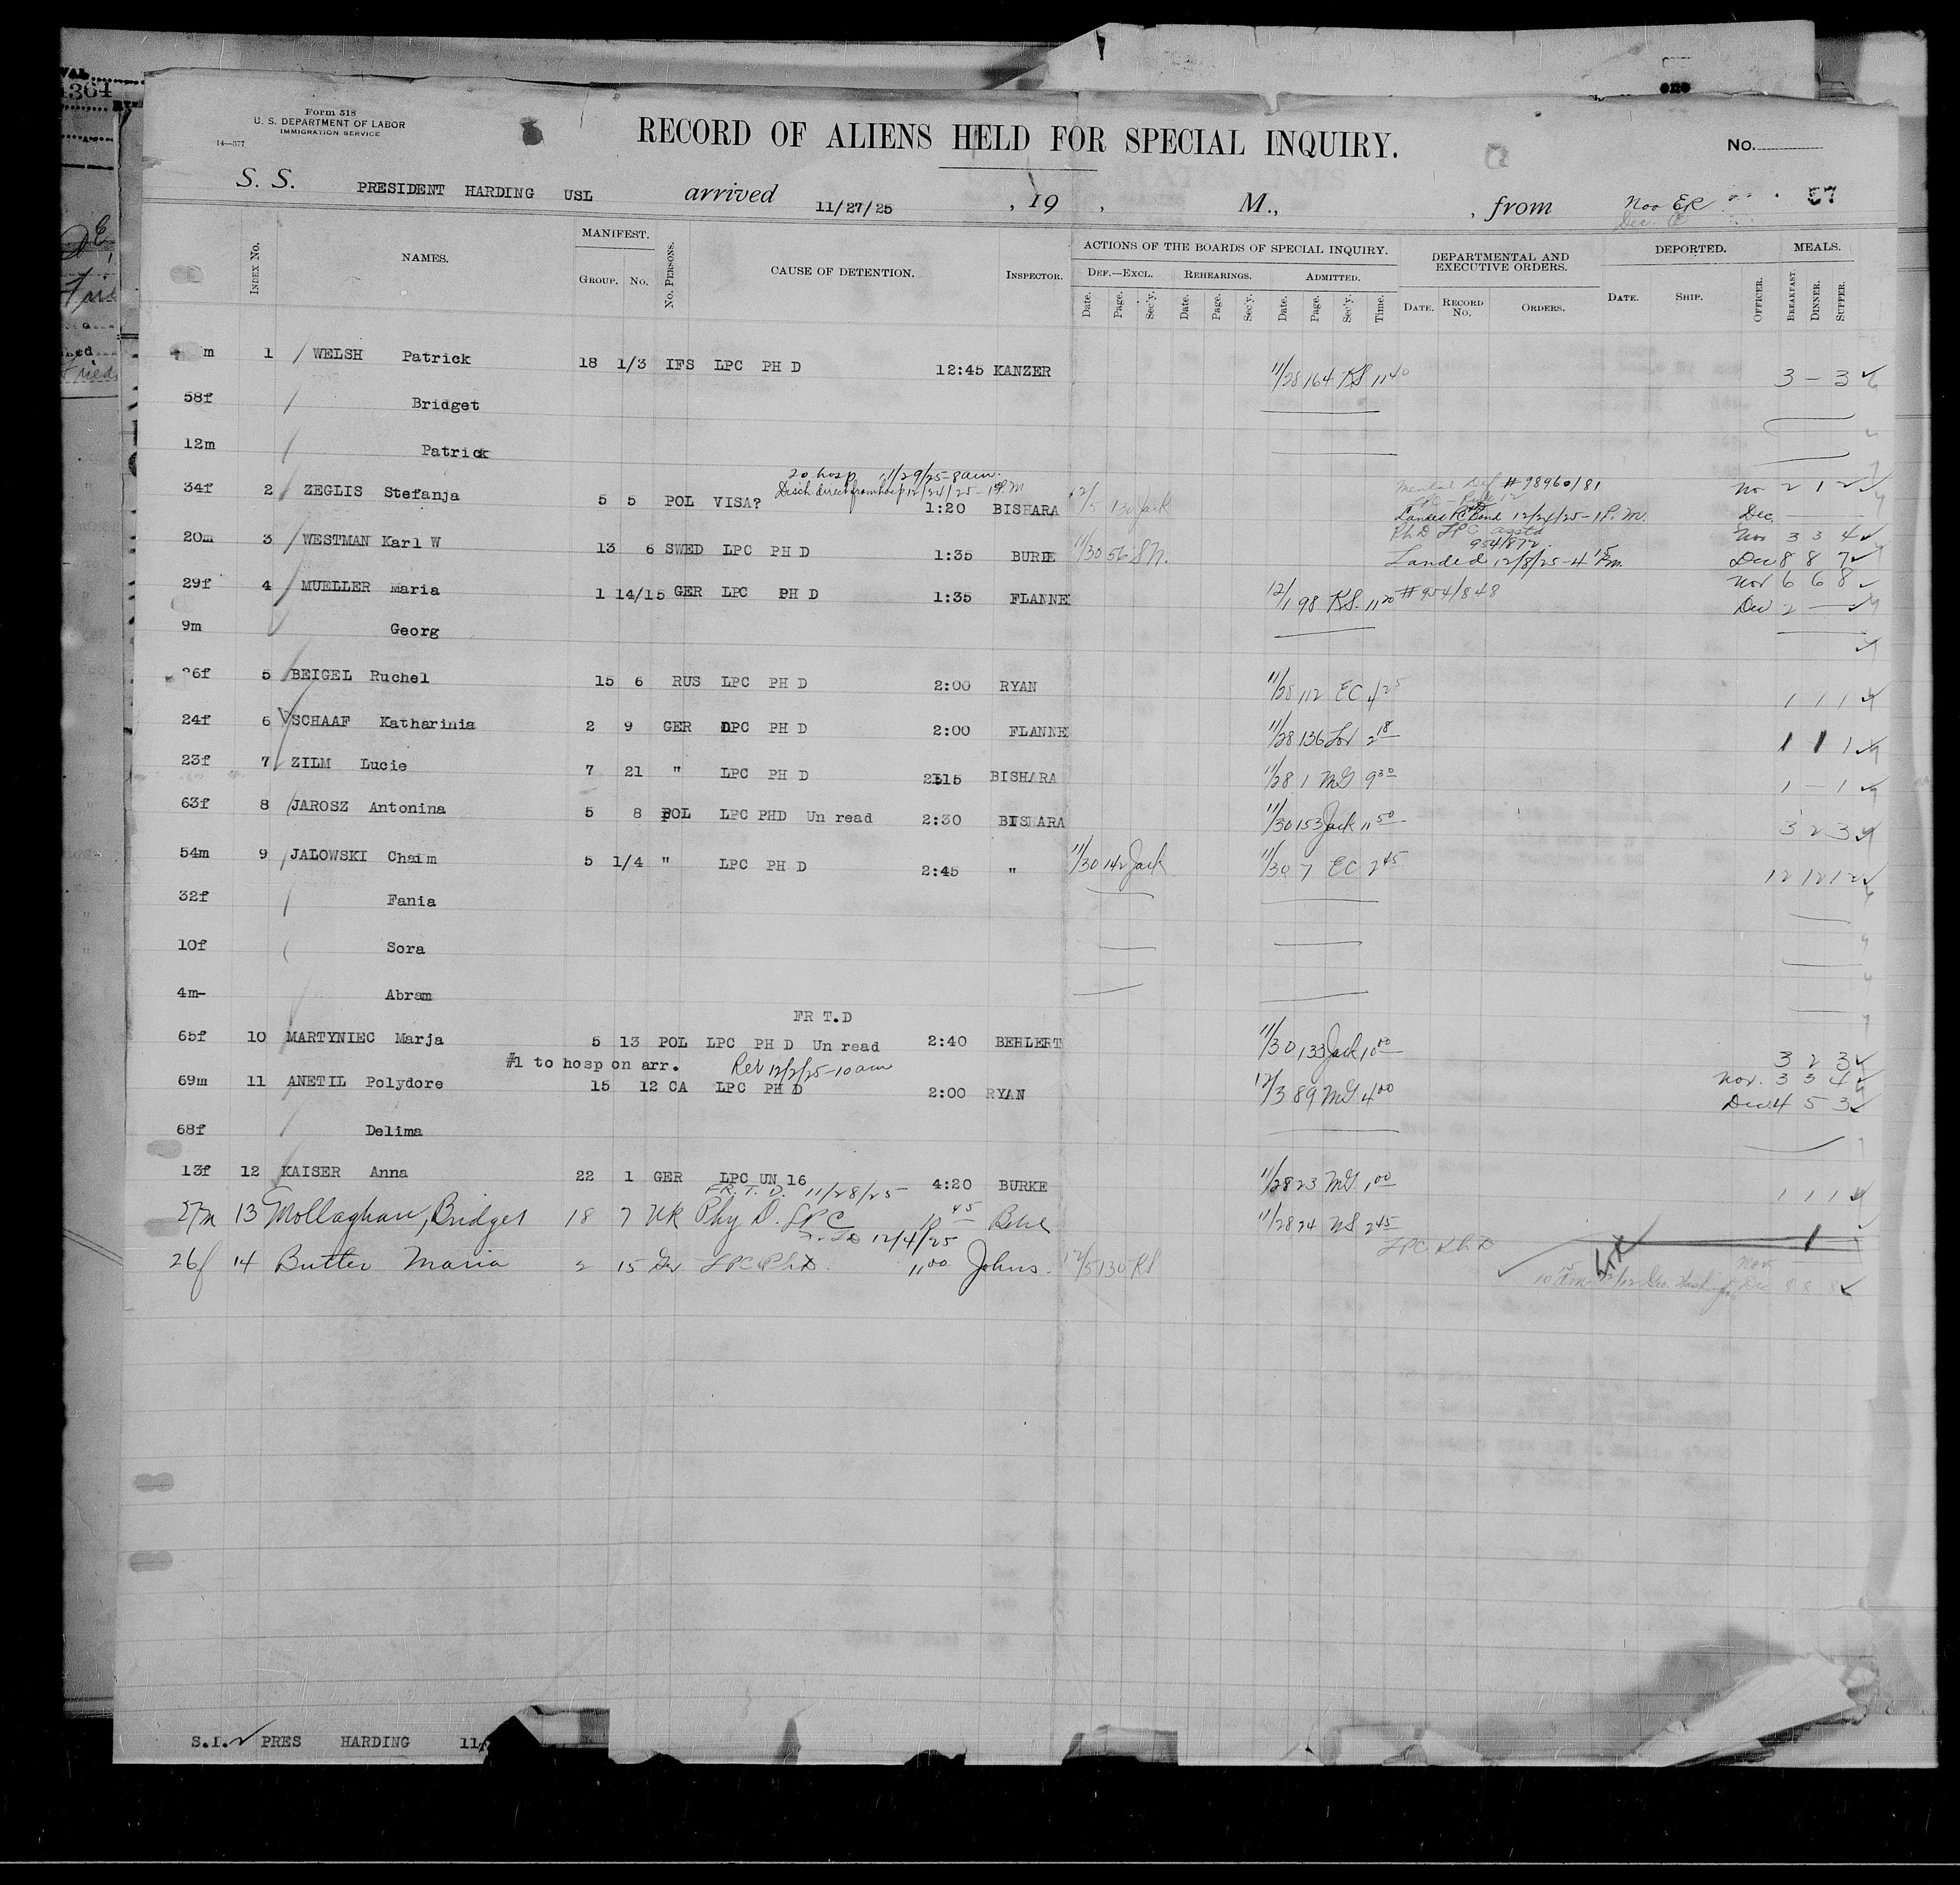 1364
one
Form 518
U. S. DEPARTMENT OF LABOR
IMMIGRATION SERVICE
14—377
RECORD OF ALIENS HELD FOR SPECIAL INQUIRY.
No.
S. S. PRESIDENT HARDING USL arrived 11/27/25 , 19 , M., , from Nov ER 57
Dec.
INDEX No. NAMES. MANIFEST. GROUP. No. No. PERSONS. CAUSE OF DETENTION. INSPECTOR. ACTIONS OF THE BOARDS OF SPECIAL INQUIRY. DEPARTMENTAL AND EXECUTIVE ORDERS. DEPORTED. MEALS.
DEF.—EXCL. REHEARINGS. ADMITTED.
Date. Page. Sec'y. Date. Page. Sec'y. Date. Page. Sec'y. Time. DATE. RECORD No. ORDERS. DATE. SHIP. OFFICER. BREAKFAST DINNER. SUPPER.
m 1 WELSH Patrick 18 1/3 IFS LPC PH D 12:45 KANZER 11/28 164 RS 11 40 3 — 3
58f Bridget
12m Patrick
To hosp 11/29/25-8am.
Disch. direct from hosp 12/24/25-1P.M
34f 2 ZEGLIS Stefanja 5 5 POL VISA? 1:20 BISHARA 12/5 130 Jack Mental Def #98960/81 Nov 2 1 2
Landed PC Bond 12/24/25-1P.M. Dec.
20m 3 WESTMAN Karl W 13 6 SWED LPC PH D 1:35 BURKE 11/30 56 SN. PhD LPC 954/872 Nov 3 3 4
Landed 12/8/25-4 15 Pm Dec 8 8 7
29f 4 MUELLER Maria 1 14/15 GER LPC PH D 1:35 FLANNE 12/1 98 RS. 11 20 #954/848 Nov 6 6 8
Dec 2 —
9m Georg
26f 5 BEIGEL Ruchel 15 6 RUS LPC PH D 2:00 RYAN 11/28 112 EC 4 25 1 1 1
24f 6 SCHAAF Katharinia 2 9 GER LPC PH D 2:00 FLANNE 11/28 136 Lov 2 18 1 1 1
23f 7 ZILM Lucie 7 21 " LPC PH D 2:15 BISHARA 11/28 1 MG 9 30 1 — 1
63f 8 JAROSZ Antonina 5 8 POL LPC PHD Un read 2:30 BISHARA 11/30 153 Jack 11 50 3 2 3
54m 9 JALOWSKI Chaim 5 1/4 " LPC PH D 2:45 " 11/30 142 Jack 11/30 7 EC 2 45 12 12 12
32f Fania
10f Sora
4m- Abram
FR T.D
65f 10 MARTYNIEC Marja 5 13 POL LPC PH D Un read 2:40 BEHLERT 11/30 133 Jack 10 00 3 2 3
#1 to hosp on arr. Ret 12/2/25-10am
69m 11 ANETIL Polydore 15 12 CA LPC PH D 2:00 RYAN 12/3 89 MG 4 00 Nov. 3 3 4
Dec 4 5 3
68f Delima
13f 12 KAISER Anna 22 1 GER LPC UN 16 4:20 BURKE 11/28 23 MG 1 00 1 1 1
FR. T. D. 11/28/25
27m 13 Mollaghan, Bridget 18 7 UK Phy D. LPC 10 45 11/28 24 NS 2 45 1
12/4/25
LPC Ph D
26f 14 Butter Maria 2 15 Ger LPC PhD. 11 00 Johns. 12/5 130 RS 10 15 am 12/12 Geo. Nov.
Dec 8 8 8
S.I. PRES HARDING 11/